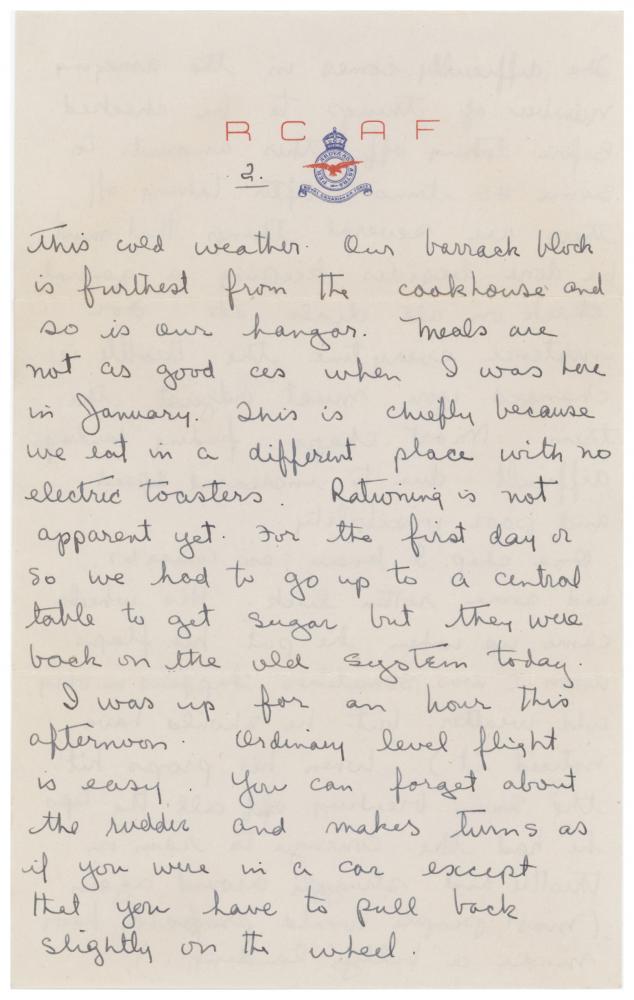 R C A F
2.
PER ARDUA AD ASTRA
ROYAL CANADIAN AIR FORCE
This cold weather. Our barrack block
is furthest from the cookhouse and
so is our hangar. Meals are
not as good as when I was here
in January. This is chiefly because
we eat in a different place with no
electric toasters. Rationing is not
apparent yet. For the first day or
so we had to go up to a central
table to get sugar but they were
back on the old system today.
I was up for an hour this
afternoon. Ordinary level flight
is easy. You can forget about
the rudder and makes turns as
if you were in a car except
that you have to pull back
slightly on the wheel.